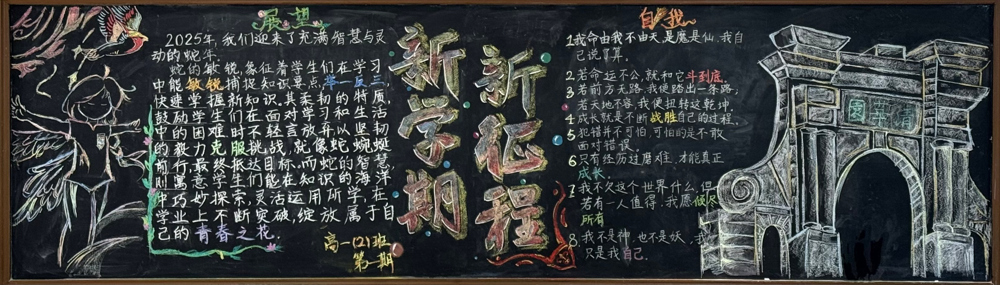 展望
2025年,我们迎来了充满智慧与灵
动的蛇年
蛇的敏锐,象征着学生们在学习
中能敏锐捕捉知识要点,举一反三,
快速掌握新知识,其柔韧的特质,
鼓励学生们在面对学习和生活
中的困难时不轻言放弃以坚韧
的毅力克服挑战,就像蛇蜿蜒
前行,最终抵达目标,而蛇的智慧,
则寓意学生们能在知识的海洋
中巧妙探索,灵活运用所学,在
学业上不断突破,绽放属于自
己的青春之花.
高一(2)班
第一期
新学期
新征程
自我
1我命由我不由天是魔是仙,我自
己说了算.
2若命运不公,就和它斗到底.
3若前方无路,我便踏出一条路,
若天地不容,我便扭转这乾坤.
4成长就是不断战胜自己的过程.
5犯错并不可怕,可怕的是不敢
面对错误.
6只有经历过磨难,才能真正
成长.
7我不欠这个世界什么,但
若有一人值得,我愿倾尽
所有
8我不是神,也不是妖,我
只是我自己.
園華清